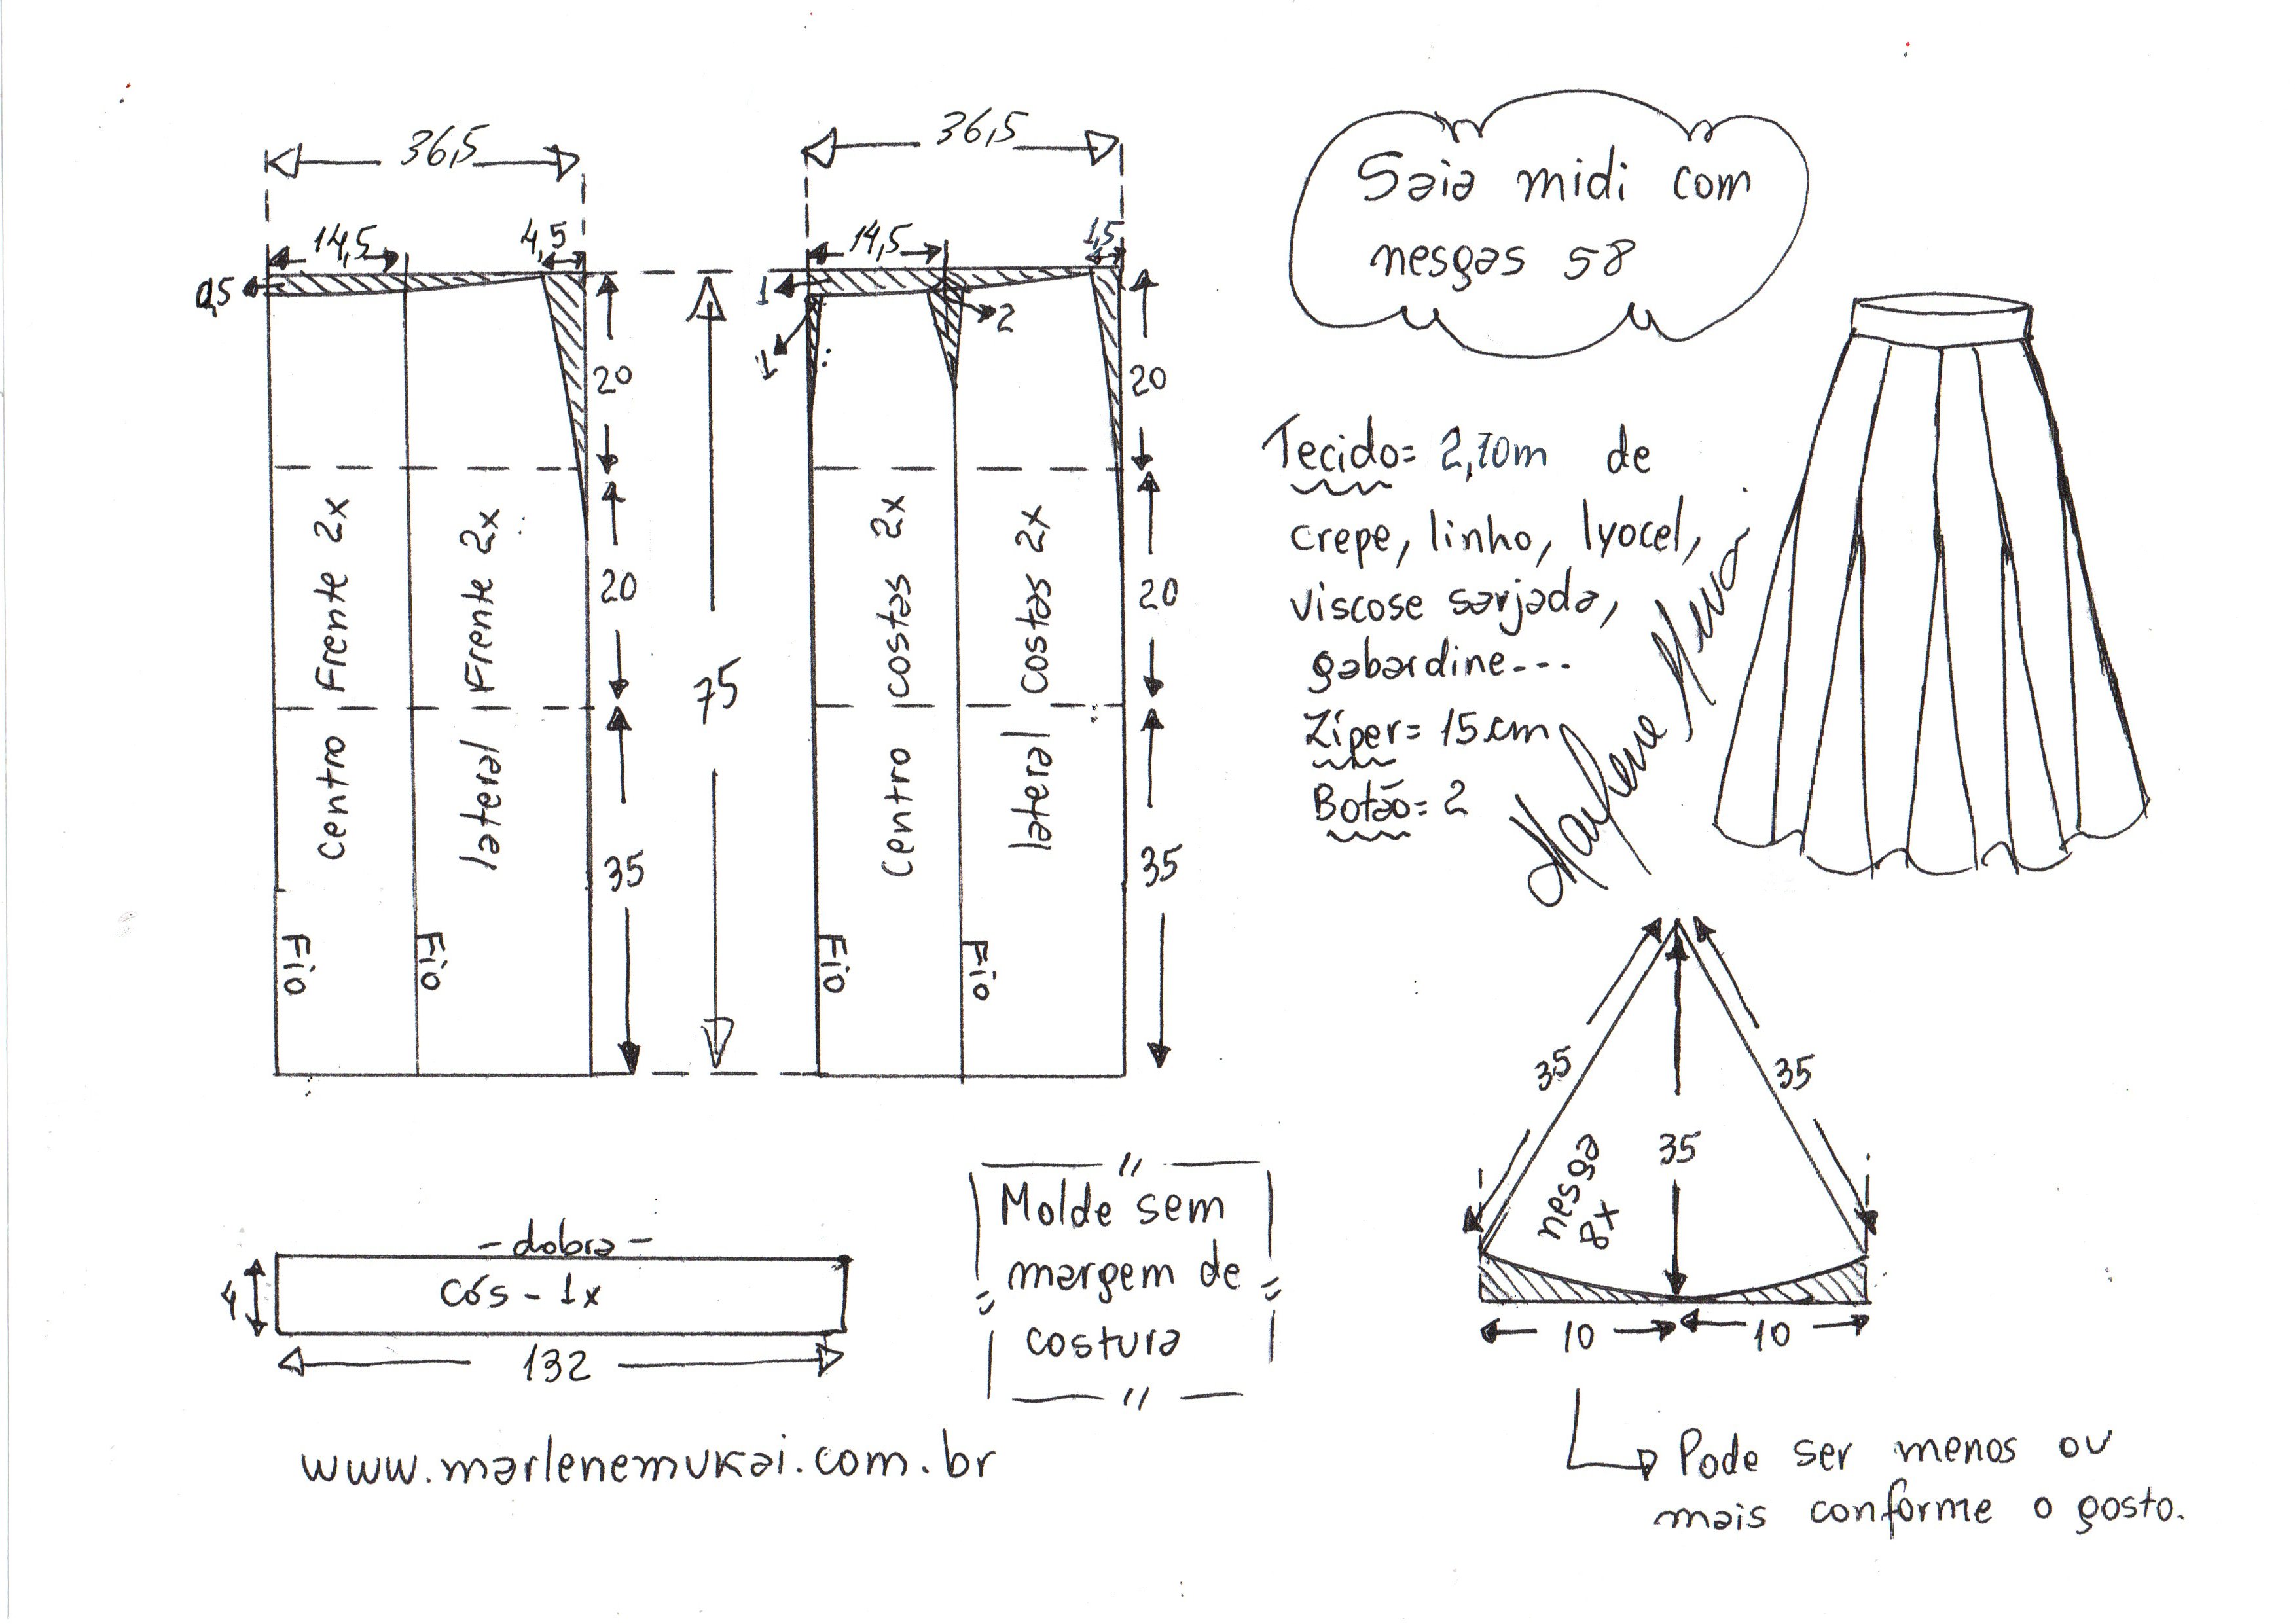 36,5
36,5
14,5
4,5
14,5
1,5
0,5
1
2
1
20
20
Centro Frente 2x
lateral Frente 2x
20
75
centro costas 2x
lateral costas 2x
20
35
35
Fio
Fio
Fio
Fio
Saia midi com
nesgas 58
Tecido= 2,10m de
crepe, linho, lyocel,
viscose sarjada,
gabardine---
Zíper= 15 cm
Botão= 2
Marlene Mukai
35
35
35
nesga
8x
10
10
Pode ser menos ou
mais conforme o gosto.
- dobra -
Cós - 1x
4
132
Molde sem
margem de
costura
www.marlenemukai.com.br